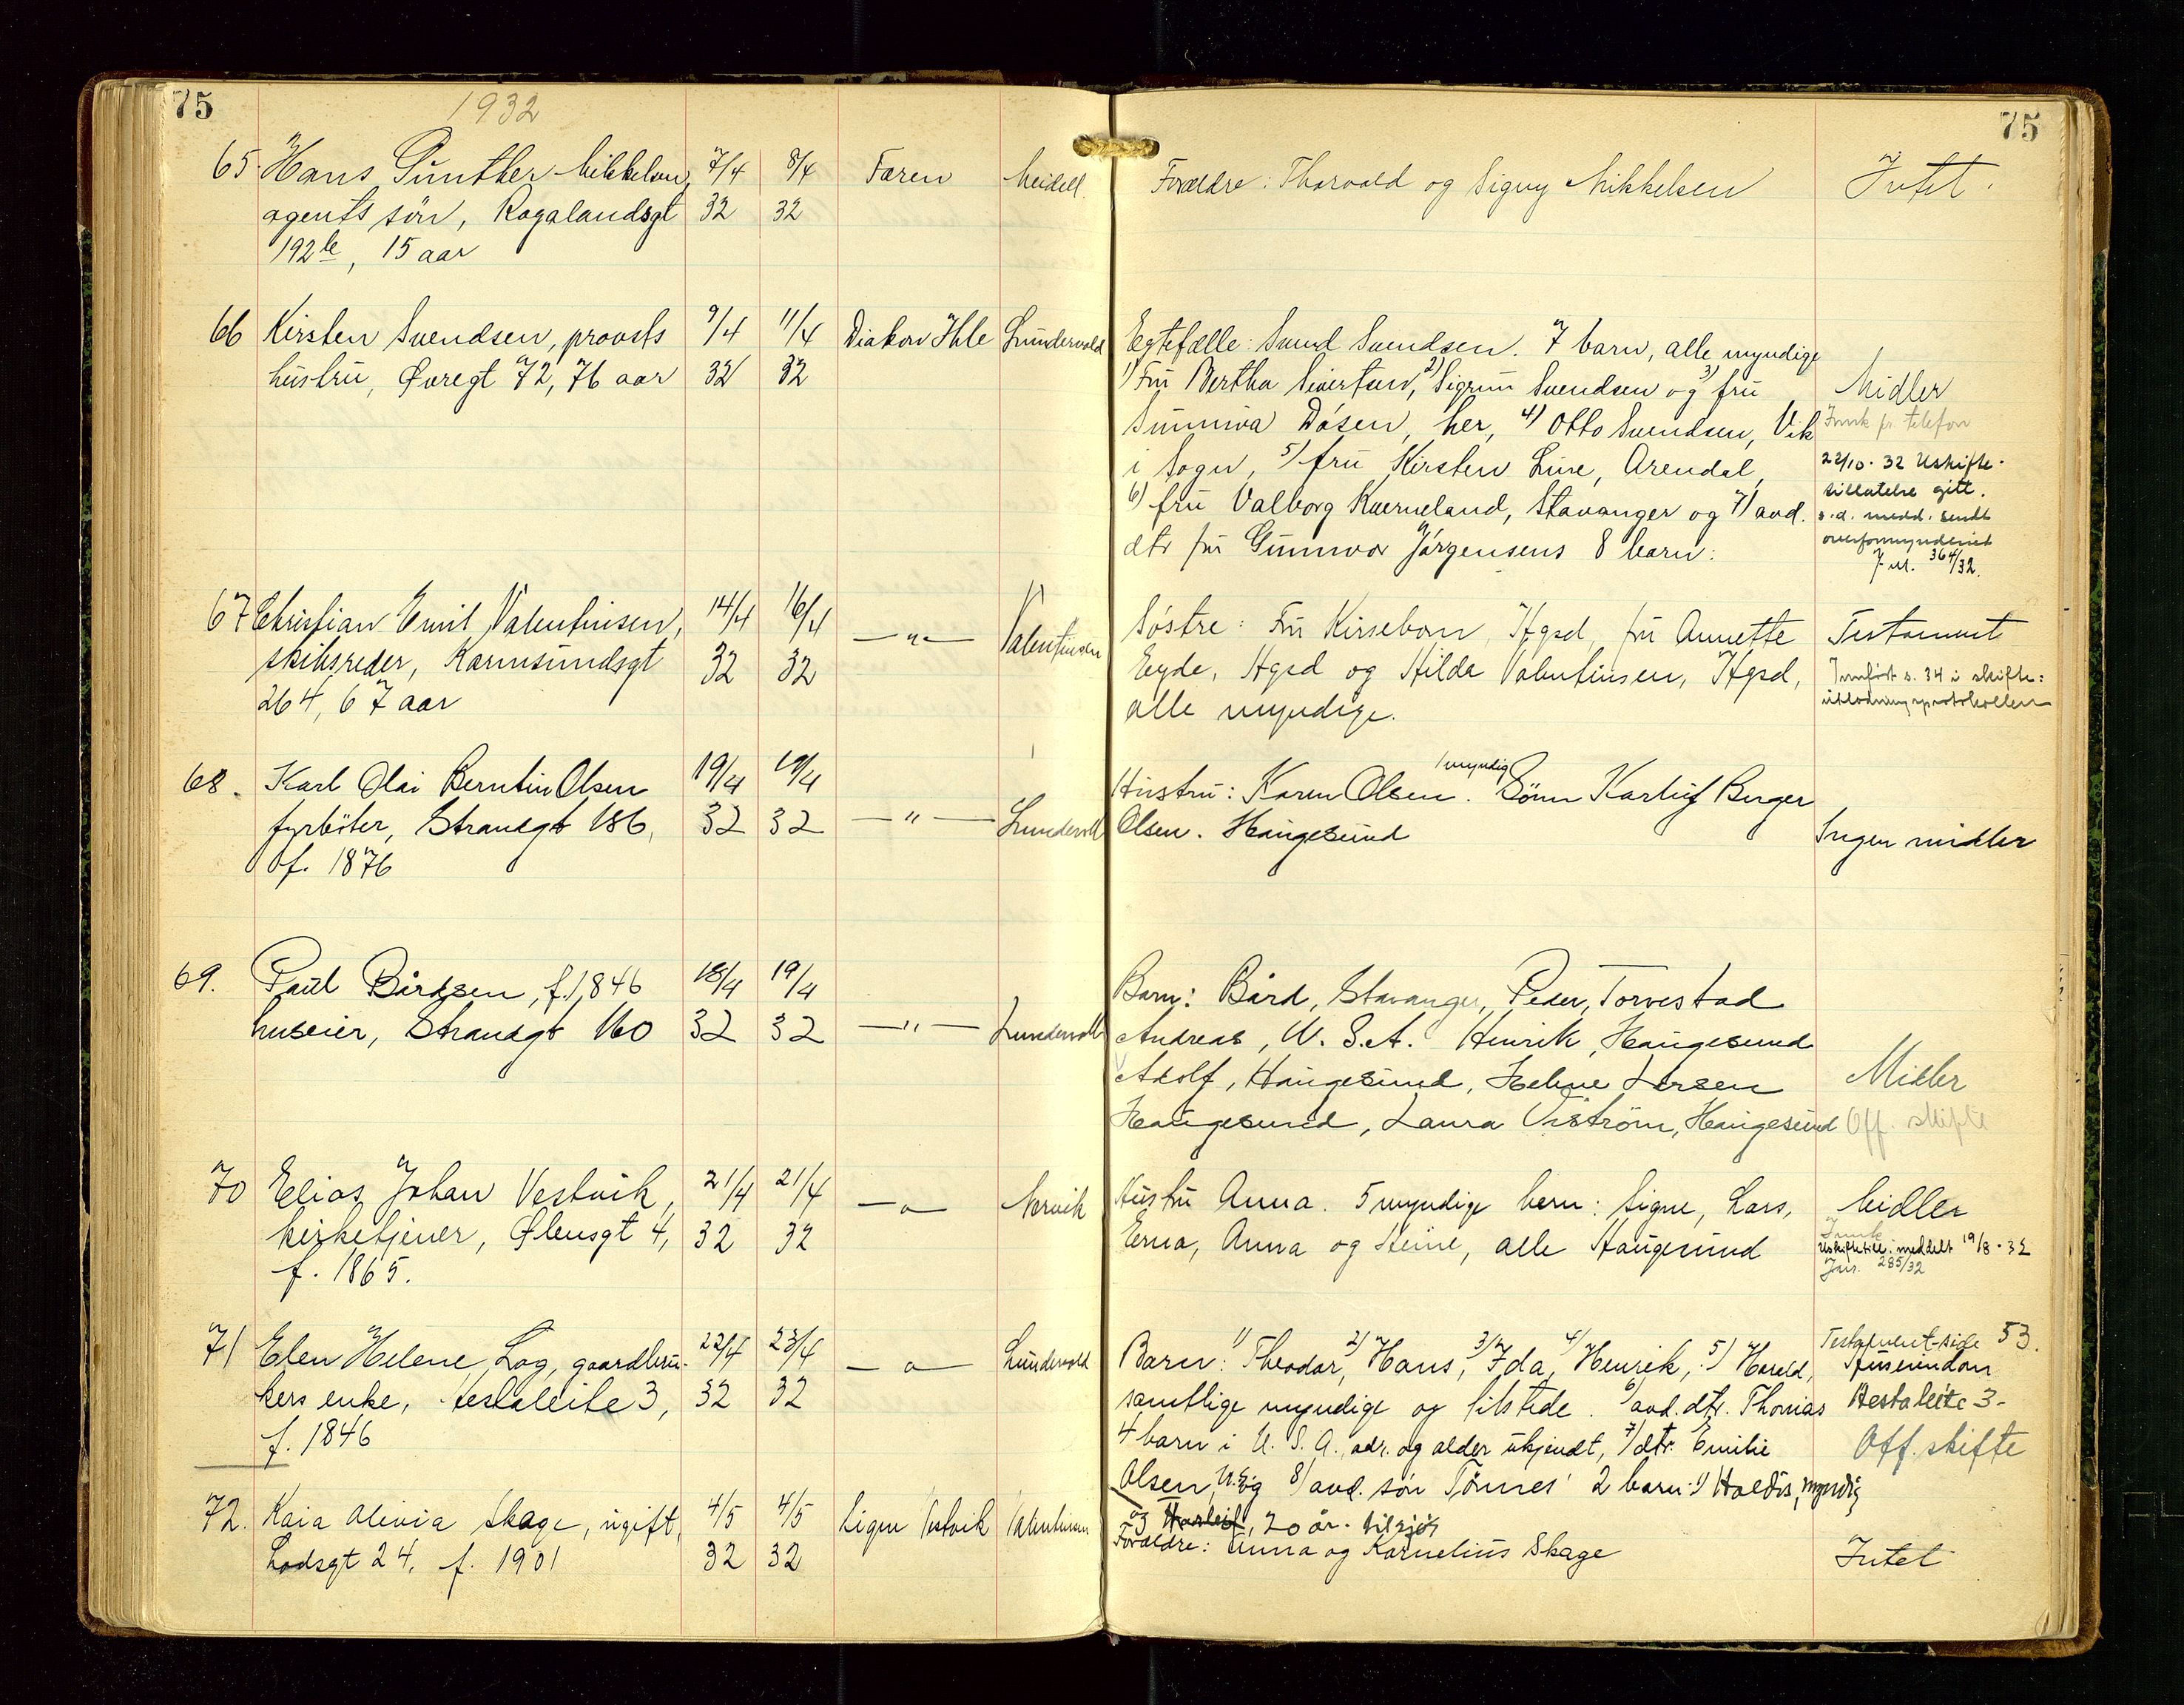 75
1932
75
65. Hans Günther Mikkelsen, 7/4 8/4 Faren Meidell. Forældre: Thorvald og Signy Mikkelsen Intet.
agents søn, Rogalandsgt 32 32
192 b, 15 aar
66 Kirsten Svendsen, provsts 9/4 11/4 Diakon Ihle Lundevold Egtefælle: Svend Svendsen. 7 barn, alle myndige
hustru, Øvregt 72, 76 aar 32 32 1) Fru Bertha Sivertsen, 2) Sigrun Svendsen og 3) fru Midler
Sunniva Døsen, her, 4) Otto Svendsen, Vik Innk pr telefon
i Sogn, 5) fru Kirsten Lure, Arendal, 22/10-32 Uskifte-
6) fru Valborg Kverneland, Stavanger og 7) avd. tillatelse gitt.
dtr fru Gunnvor Jørgensens 8 barn: s.d. medd. sendt
overformynderiet
J.nr. 364/32.
67 Christian Emil Valentinsen, 14/4 16/4 —"— Valentinsen Søstre: Fru Kirsebom, Hgsd, fru Annette Testament
skibsreder, Karmsundsgt 32 32 Eyde, Hgsd og Hilda Valentinsen, Hgsd, Innført s. 34 i skifte=
264, 67 aar alle myndige. utlodningsprotokollen
68. Karl Olai Berntin Olsen 19/4 19/4 Hustru: Karen Olsen. 1 myndig Sønn Karluf Berger
fyrbøter, Strandgt 186, 32 32 —"— Lundevold Olsen. Haugesund Ingen midler
f. 1876
69. Paul Bårdsen, f. 1846 18/4 19/4 Barn: Bård, Stavanger, Peder, Torvestad
huseier, Strandgt 160 32 32 —"— Lundevold Andreas, U.S.A. Henrik, Haugesund
Adolf, Haugesund, Helene Larsen Midler
Haugesund, Laura Viström, Haugesund Off. skifte
70 Elias Johan Vestvik, 21/4 21/4 —"— Nervik Hustru Anna. 5 myndige barn: Signe, Lars, Midler
kirketjener, Ølensgt 4, 32 32 Erna, Anna og Heine, alle Haugesund Innk
f. 1865. Uskiftetill. meddelt 19/8-32
Jnr. 285/32
71 Elen Helene Log, gaardbru- 22/4 23/4 —"— Lundevold Barn: 1) Theodor, 2) Hans, 3) Ida, 4) Henrik, 5) Harald, Testament-side 53.
kers enke, Hestaleite 3, 32 32 samtlige myndige og tilstede. 6) avd. dtr. Thomas Huseiendom
f. 1846 4 barn i U.S.A., adr. og alder ukjendt, 7) dtr. Emilie Hestaleite 3-
Olsen, U.S. og 8) avd. søn Tønnes' 2 barn: 1) Haldis, myndig Off. skifte
og Harleif, 20 år. tilsjøs
72. Kaia Olivia Skage, ugift, 4/5 4/5 Signe Vestvik Valentinsen Forældre: Anna og Kornelius Skage Intet
Lodsgt 24, f. 1901 32 32